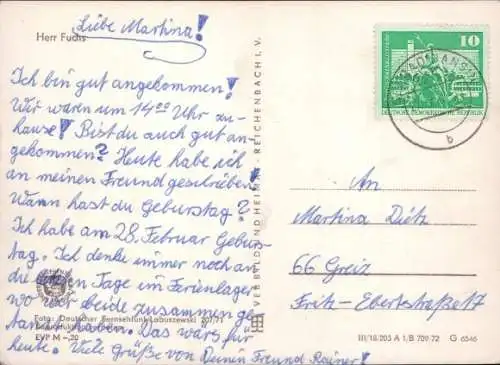 Liebe Martina!
Herr Fuchs
Ich bin gut angekommen!
Wir waren um 14⁰⁰ Uhr zu-
hause! Bist du auch gut an-
gekommen? Heute habe ich
an meinen Freund geschrieben!
Wann hast du Geburtstag?
Ich habe am 28. Februar Geburs-
tag. Ich denke immer noch an
die Tagen im Ferienlager
wo wir beide zusammen ge-
tanzt haben. Das wars für
heute. Viele Grüße von Deinen Freund Rainer!
Foto: Deutscher Fernsehfunk-Labuszewski
EVP M -,20
VEB BILD UND HEIMAT · REICHENBACH I. V.
10
DEUTSCHE DEMOKRATISCHE REPUBLIK
b
An
Martina Dietz
66 Greiz
Fritz-Ebertstraße 17
III/18/205 A 1/B 709/72 G 6546